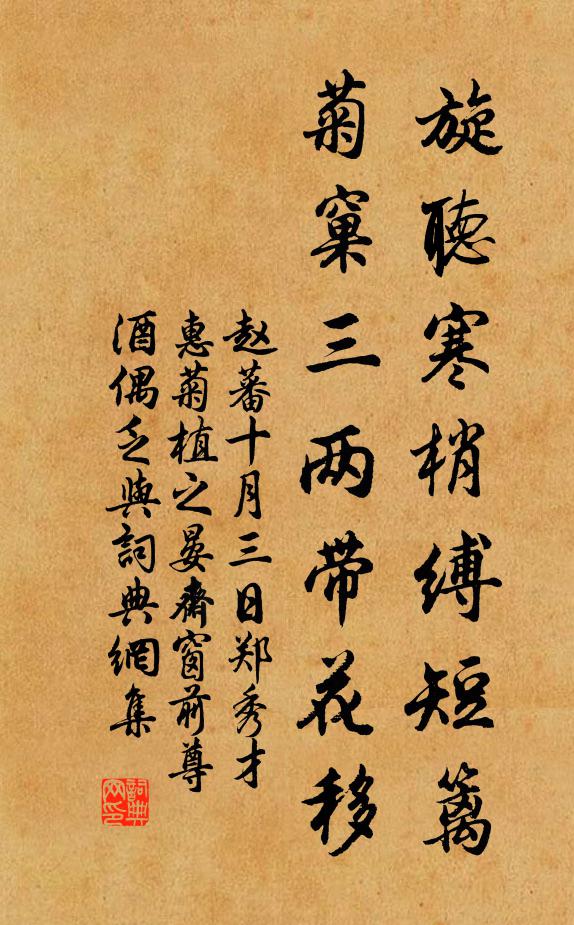 旋聽寒梢縛短篱
菊窠三两带花移
赵蕃十月三日郑秀才
惠菊植之晏斋窗前尊
酒偶乏與詞典網集
詞典
网印